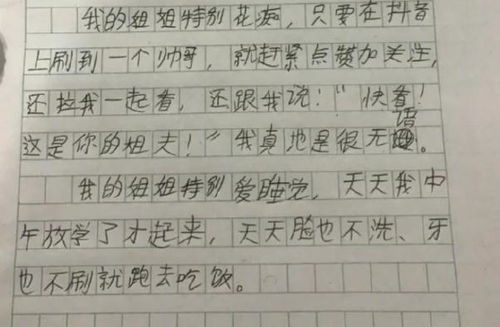 我的姐姐特别花痴，只要在抖音
上刷到一个帅哥，就赶紧点赞加关注，
还拉我一起看，还跟我说！“快看！
这是你的姐夫！”我真地是很无语。
我的姐姐特别爱睡觉，天天我中
午放学了才起来，天天脸也不洗、牙
也不刷就跑去吃饭。